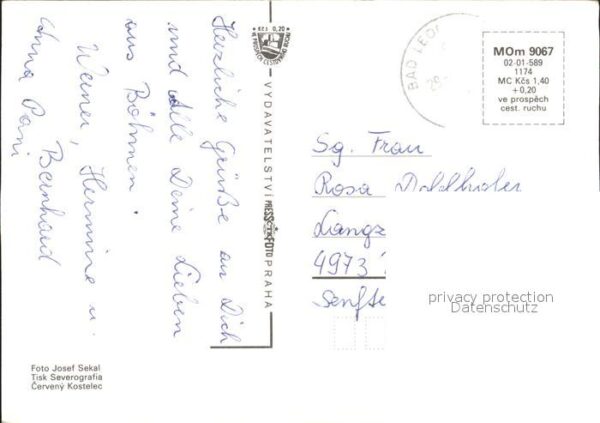 Herzliche Grüße an Dich
und Alle Deine Lieben
aus Böhmen.
Werner, Hermine u.
Bernhard
Anna Pani
Kčs 0,20
VE PROSPĚCH CESTOVNÍHO RUCHU
VYDAVATELSTVÍ PRESSFOTO PRAHA
BAD LEON
28
MOm 9067
02-01-589
1174
MC Kčs 1,40
+ 0,20
ve prospěch
cest. ruchu
Sg. Frau
Rosa
Langz
4973
Senfte
privacy protection
Datenschutz
Foto Josef Sekal
Tisk Severografia
Červený Kostelec